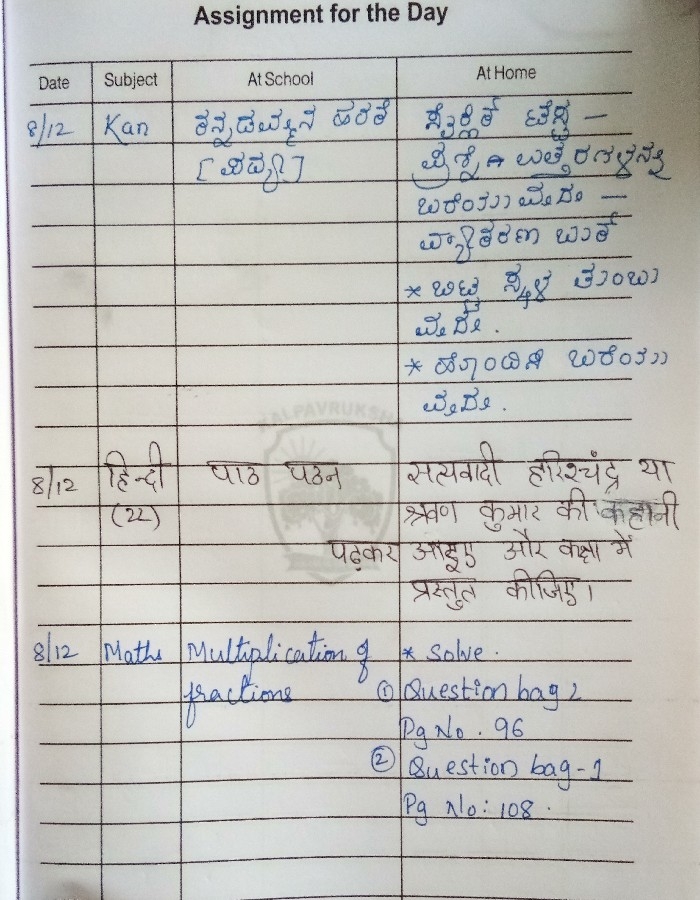 Assignment for the Day
Date Subject At School At Home
8/12 Kan ಕನ್ನಡಮ್ಮನ ಹರಕೆ
[ ಪದ್ಯ ]
ಪ್ರಶ್ನೆ ಉತ್ತರಗಳನ್ನು
ಬರೆಯುವುದು —
ವ್ಯಾಕರಣ
* ಬಿಟ್ಟ ಸ್ಥಳ ತುಂಬು
ವುದು.
* ಬರೆಯು
ವುದು.
KALPAVRUKSHA
8/12 हिन्दी पाठ पठन सत्यवादी हरिश्चंद्र या
(22) श्रवण कुमार की कहानी
पढ़कर आइए और कक्षा में
प्रस्तुत कीजिए।
8/12 Maths Multiplication of * Solve.
fractions ① Question bag 2
Pg No. 96
② Question bag-1
Pg No: 108.